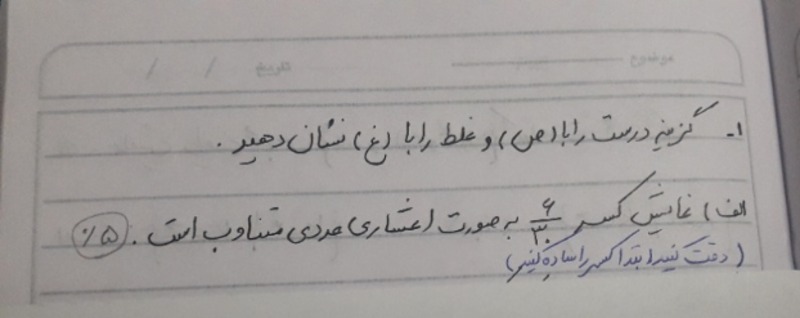 موضوع تاریخ / /
۱- گزینه درست را با (ص) و غلط را با (غ) نشان دهید.
الف) نمایش کسر ۶/۳۰ به صورت اعشاری عددی متناوب است. (۵٪)
(دقت کنید ابتدا کسر را ساده کنید)